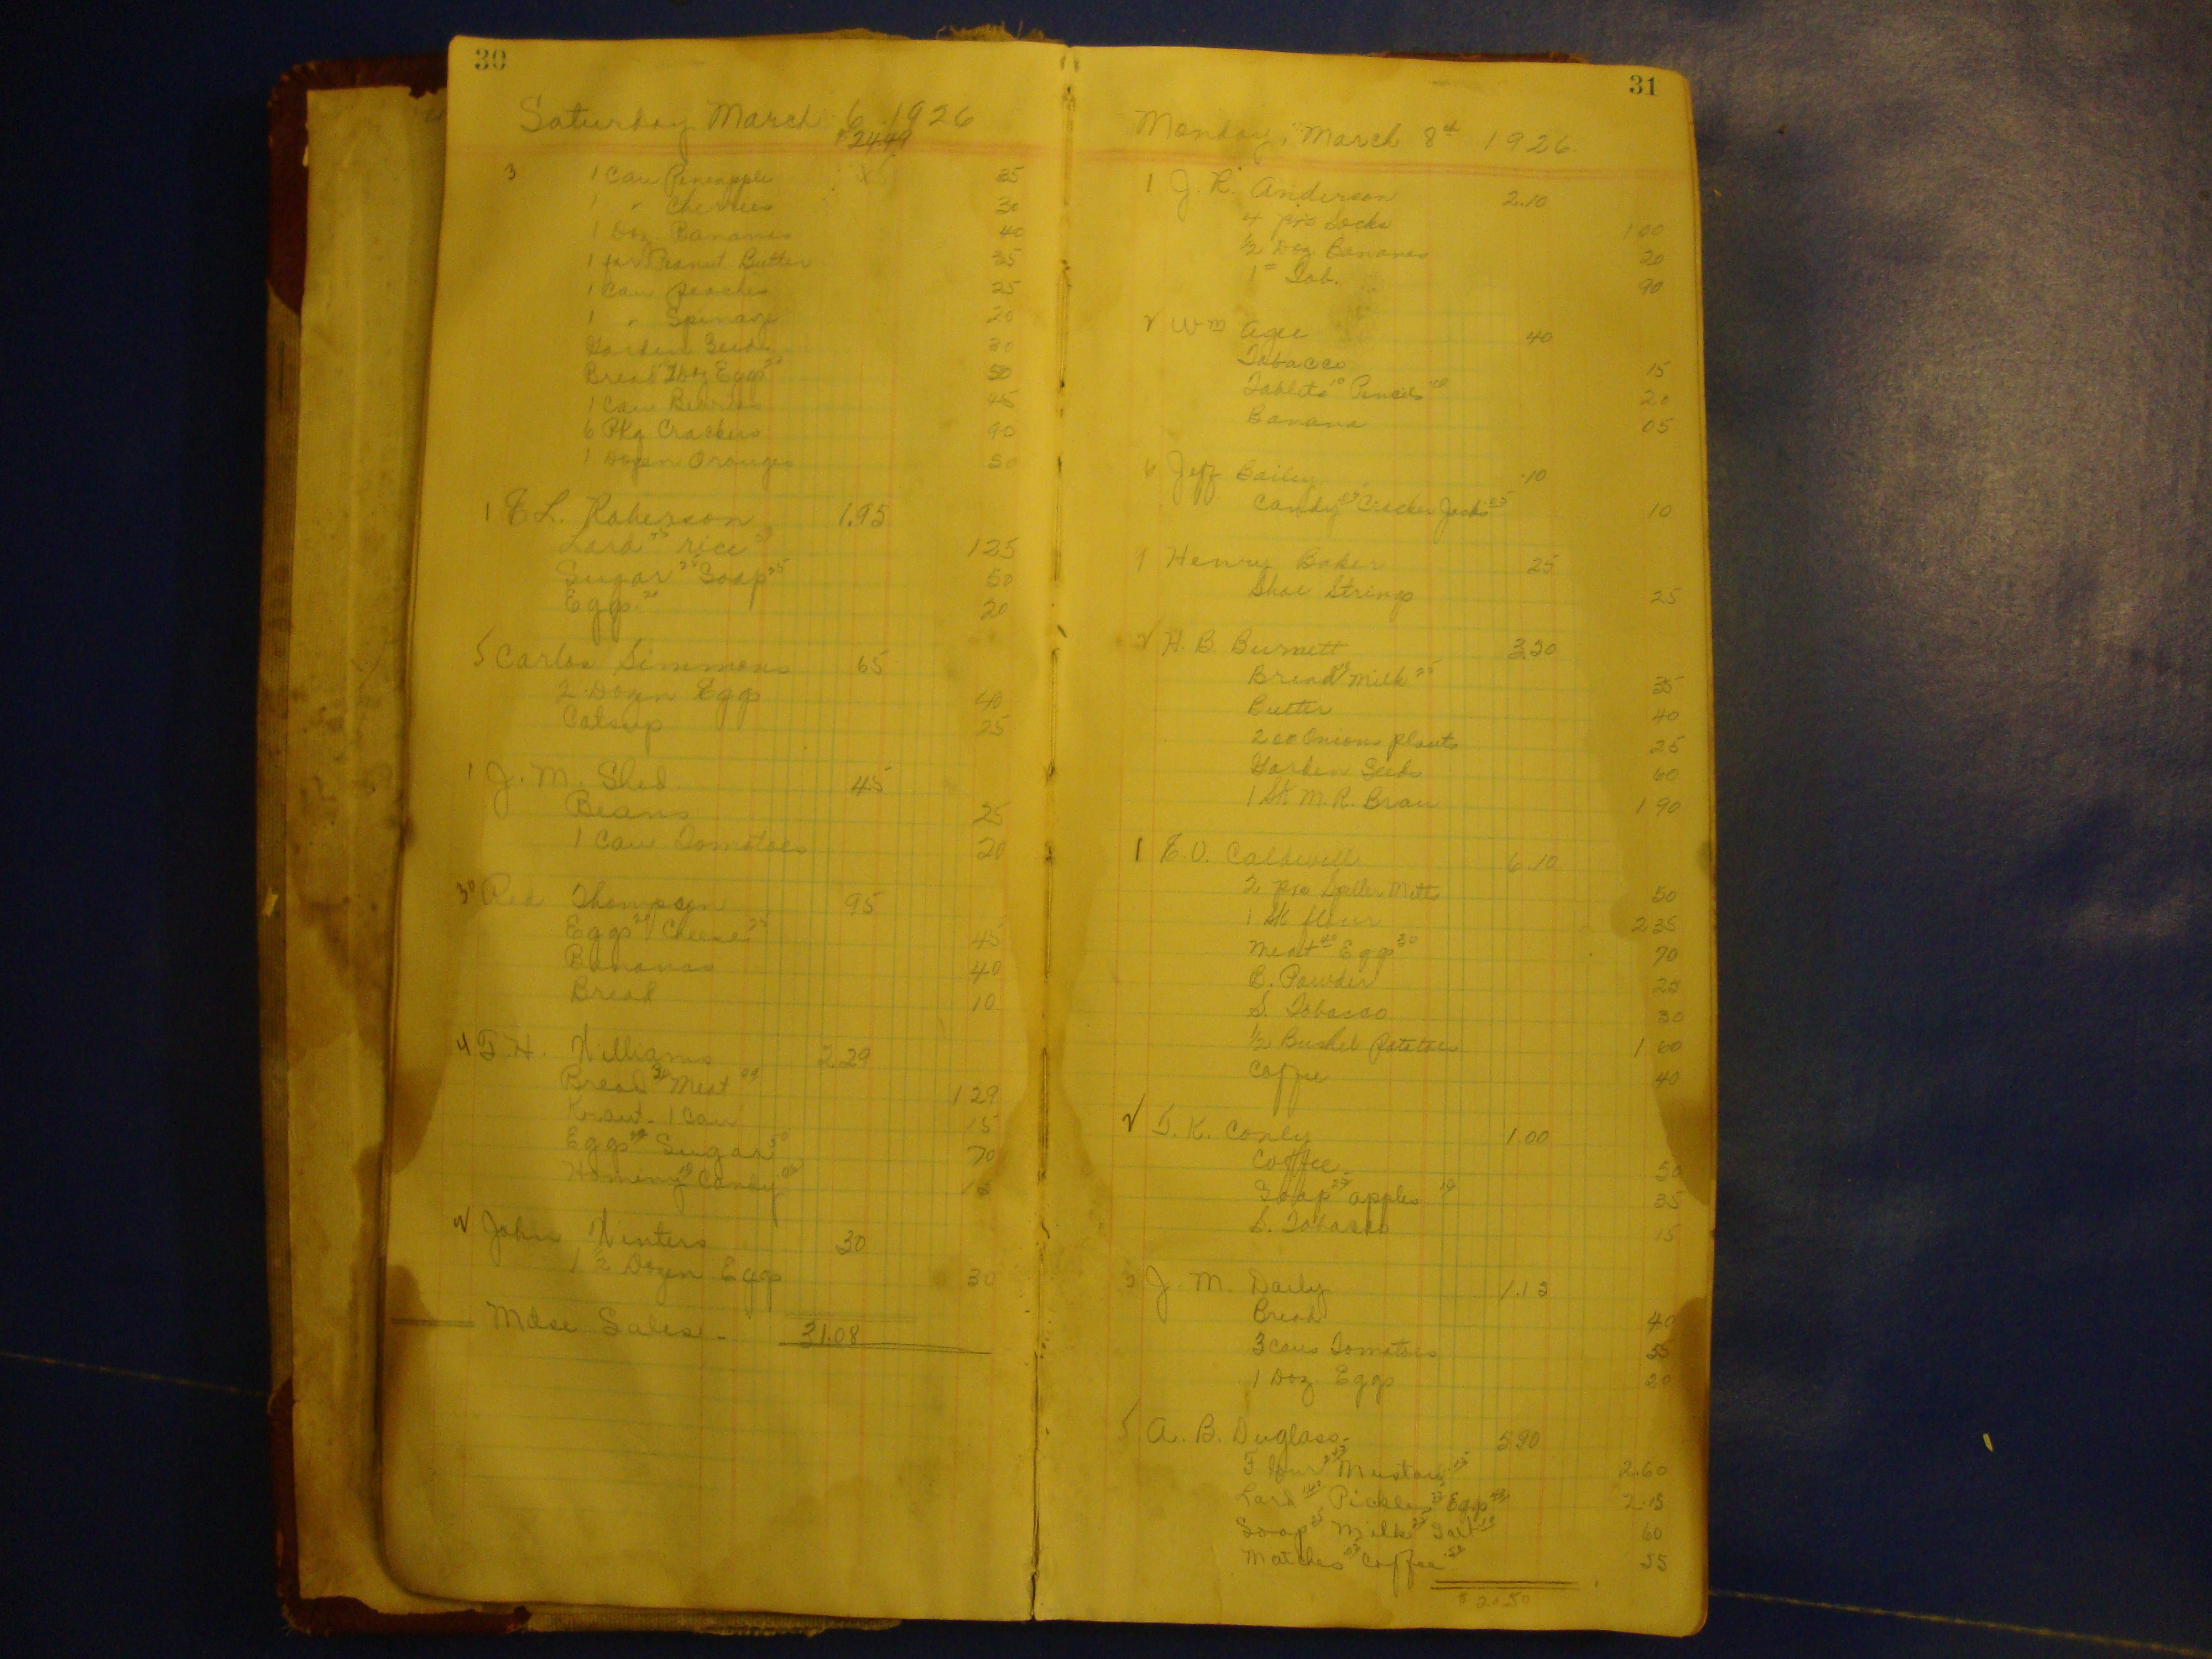 30
Saturday March 6 1926
$24.49
3 1 Can Pineapple 35
1 " Cherries 30
1 Doz Bananas 40
1 jar Peanut Butter 35
1 Can peaches 25
1 " Spinage 20
Garden Seeds 30
Bread 2 Doz Eggs 50
1 Can 45
6 Pkg Crackers 90
1 Dozen Oranges 50
1 E L. Roberson 1.95
Lard 75 rice 50 125
Sugar 25 Soap 25 50
Eggs 20 20
5 Carlos Simmons 65
2 Dozen Eggs 40
Catsup 25
1 J. M. Shed 45
Beans 25
1 Can Tomatoes 20
Thompson 95
Eggs 20 Cheese 25 45
Bananas 40
Bread 10
4 T. H. Williams 2.29
Bread 20 Meat 129
Kraut 1 Can 15
Eggs 20 Sugar 50 70
Hominy 10 Candy 05 15
2 John Winters 30
1 1/2 Dozen Eggs 30
Mdse Sales - 31.08
31
Monday, March 8th 1926.
1 J. R. Anderson 2.10
4 prs Socks 1 00
1/2 Doz Bananas 20
1 # Tob. 90
2 Wm Agee 40
Tobacco 15
Tablets 10 Pencils 10 20
Banana 05
6 Jeff Bailey .10
Candy 05 Cracker Jacks 05 10
9 Henry Baker 25
Shoe Strings 25
2 H. B. Burnett 3.50
Bread 10 Milk 25 35
Butter 40
200 Onions plants 25
Garden Seeds 60
1 Sk M. R. Bran 1 90
1 E. V. Caldwell 6.10
2 prs Mitts 50
1 Sk flour 2 35
Meat 40 Eggs 30 70
B. Powder 25
S. Tobacco 30
1/2 Bushel Potatoes 1 60
Coffee 40
2 T. K. Conly 1.00
Coffee 50
Soap 25 apples 10 35
S. Tobacco 15
J. M. Daily 1.15
Bread 40
3 Cans Tomatoes 55
1 Doz Eggs 20
5 A. B. Duglass. 5.90
Flour Mustard 15 2.60
Lard Pickles Eggs 2.15
Soap 25 Milk 25 Salt 10 60
Matches 05 Coffee 50 55
$20.50